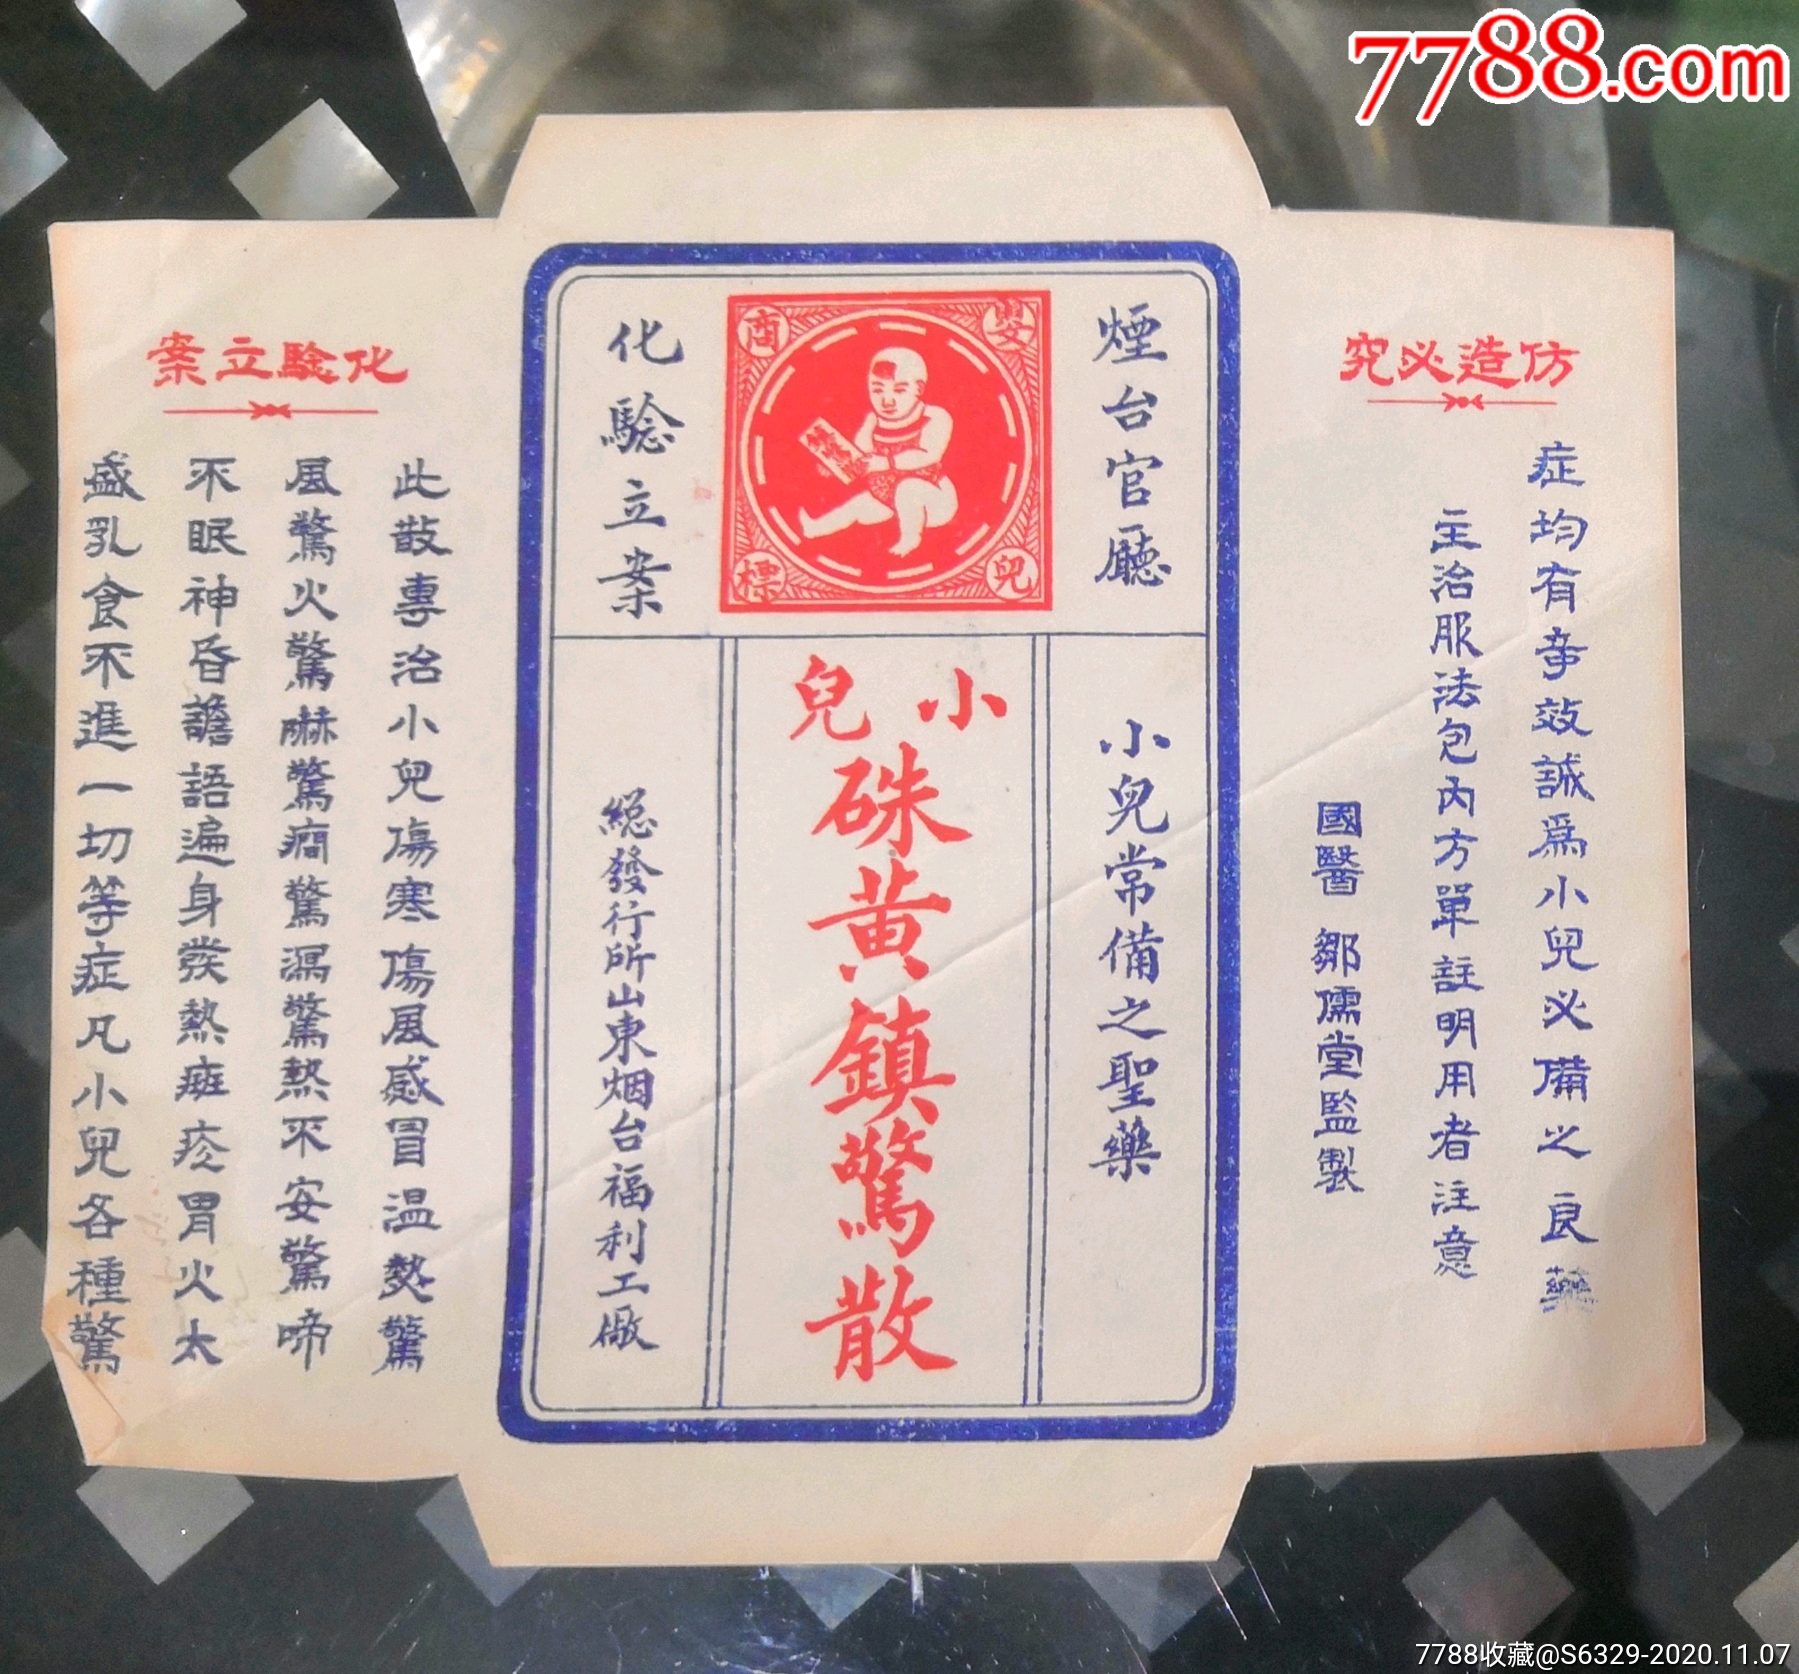 7788.com
仿造必究
化驗立案
煙台官廳
化驗立案
嬰兒
商標
小兒
硃黃鎮驚散
小兒常備之聖藥
總發行所山東烟台福利工廠
此散專治小兒傷寒傷風感冒温熱驚
風驚火驚嚇驚癎驚漏驚熱不安驚啼
不眠神昏譫語遍身發熱斑疹胃火太
盛乳食不進一切等症凡小兒各種驚
症均有奇效誠為小兒必備之良藥
主治服法包內方單註明用者注意
國醫 鄒儒堂監製
7788收藏@S6329-2020.11.07